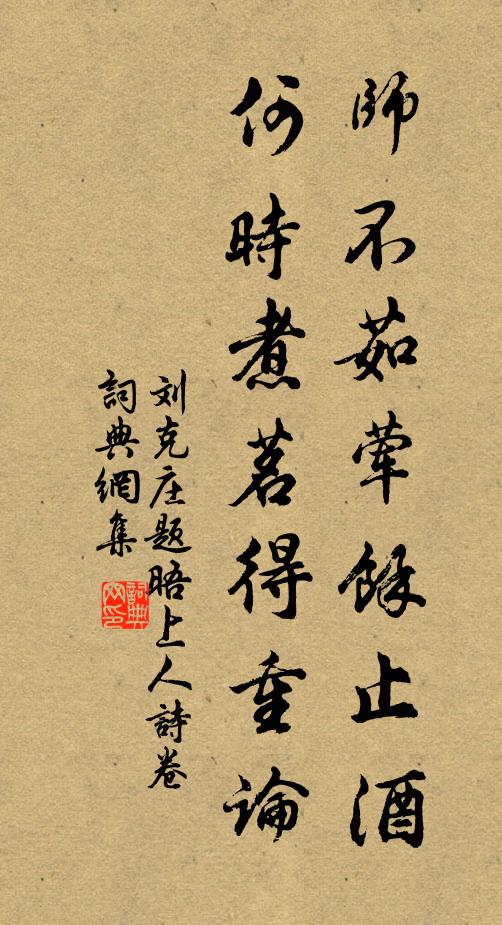 師不茹荤餘止酒
何時煮茗得重論
刘克庄题晤上人詩卷
詞典網集
詞典网印